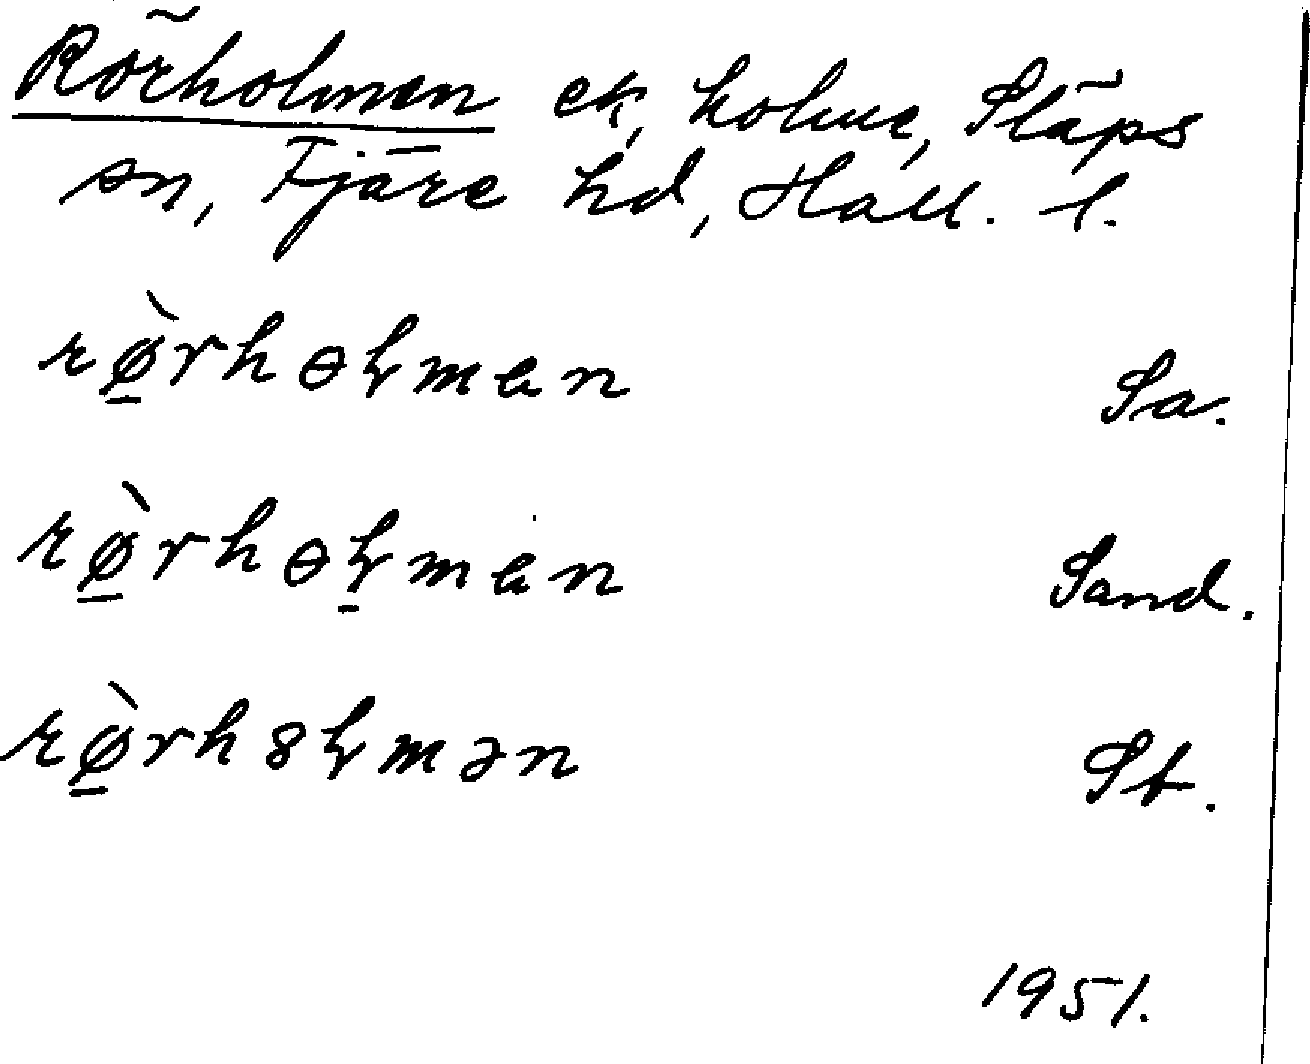 Rörholmen ek, holme, Släps
sn, Fjäre hd, Hall. l.
rø̱̀rhɵɫmen Sa.
rø̱̀rhɵɫ̱men Sand.
rø̱̀rh8ɫmən St.
1951.